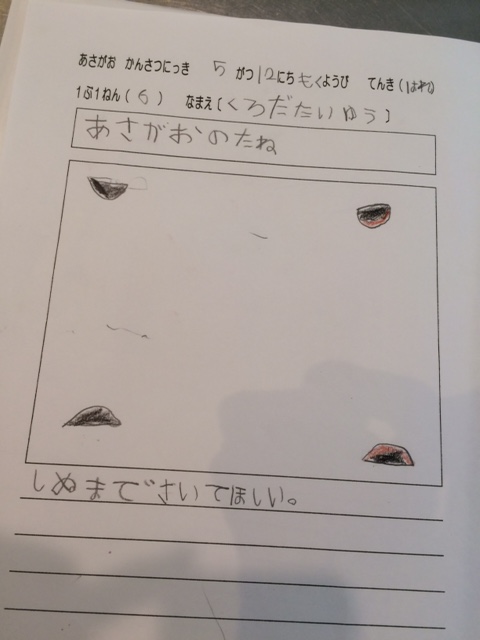 あさがお かんさつにっき 5がつ12にちもくようび てんき(はれ)
1ぷ1ねん(6) なまえ(くろだたいゆう)
あさがおのたね
しぬまでさいてほしい。